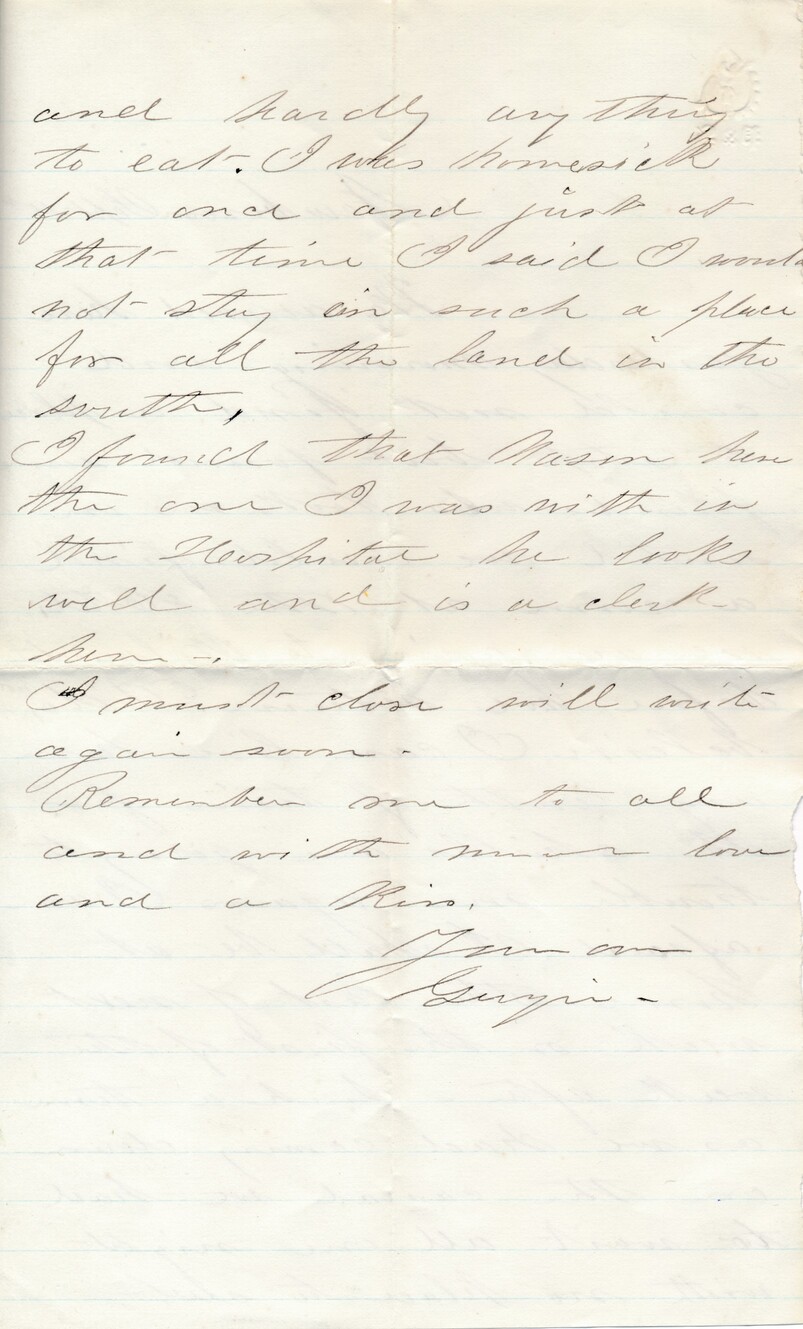 and hardly any thing
to eat. I was homesick
for once and just at
that time I said I would
not stay in such a place
for all the land in the
south,
I found that Nason here
the one I was with in
the Hospital he looks
well and is a clerk
here -.
I must close will write
again soon -
Remember me to all
and with much love
and a kiss.
Your own
Georgie -